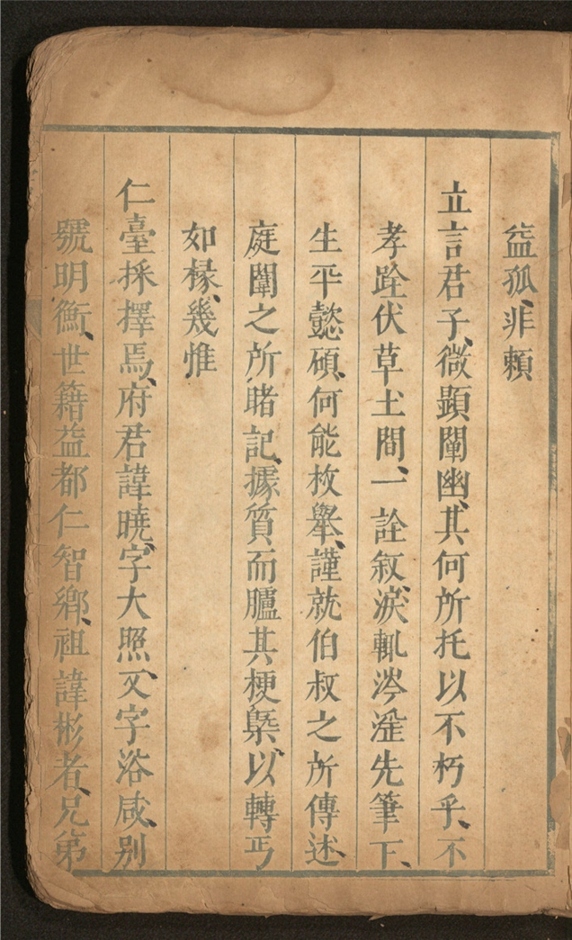 益孤、非賴
立言君子、微顯闡幽、其何所托以不朽乎、不
孝跧伏草土間、一詮叙、淚輒涔滛先筆下、
生平懿碩、何能枚舉、謹就伯叔之所傳述、
庭闈之所睹記、據質而臚其梗槩、以轉丐
如椽、幾惟
仁臺採擇焉、府君諱曉、字大照、又字浴咸、别
號明衡、世籍益都仁智鄉、祖諱彬者、兄弟